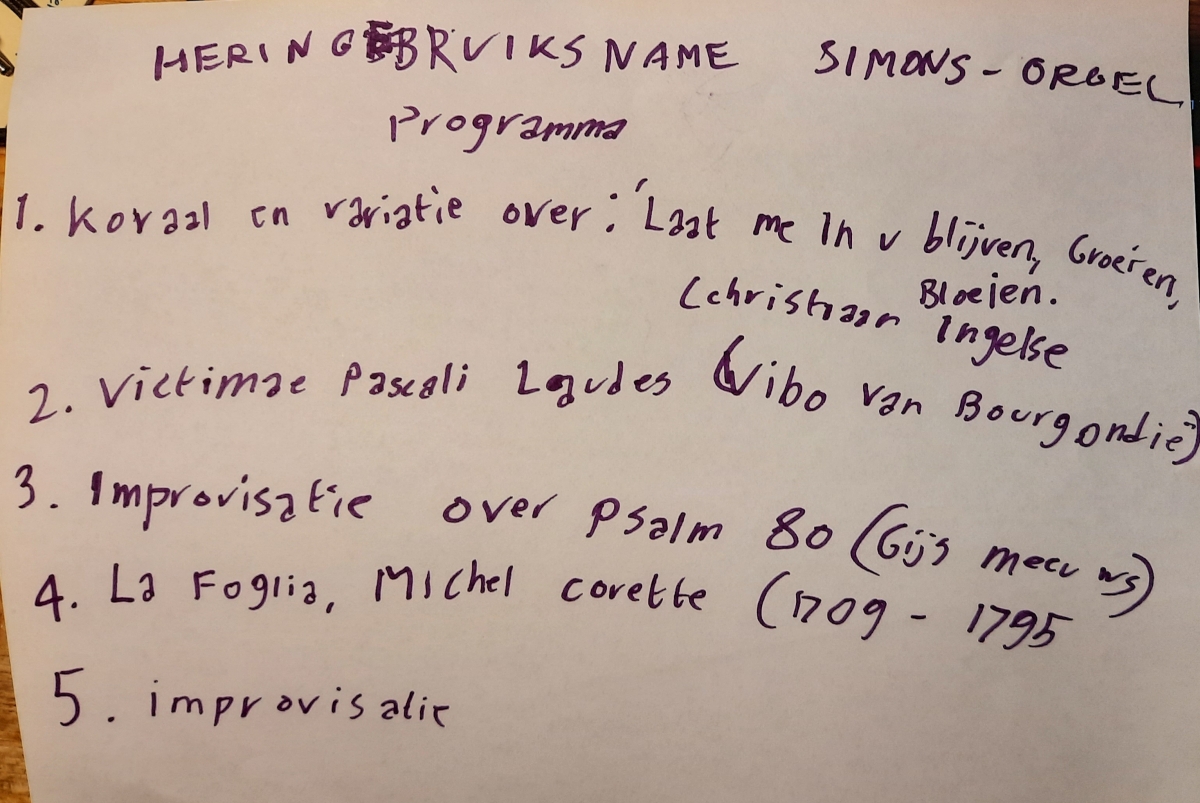 HERINGEBRUIKSNAME SIMONS-ORGEL
Programma
1. Koraal en variatie over: 'Laat me In u blijven, Groeien,
Bloeien.
(christiaan Ingelse
2. Victimae Pascali Laudes (Wibo van Bourgondië)
3. Improvisatie over Psalm 80 (Gijs meeuws)
4. La Foglia, Michel corette (1709 - 1795
5. improvisatie